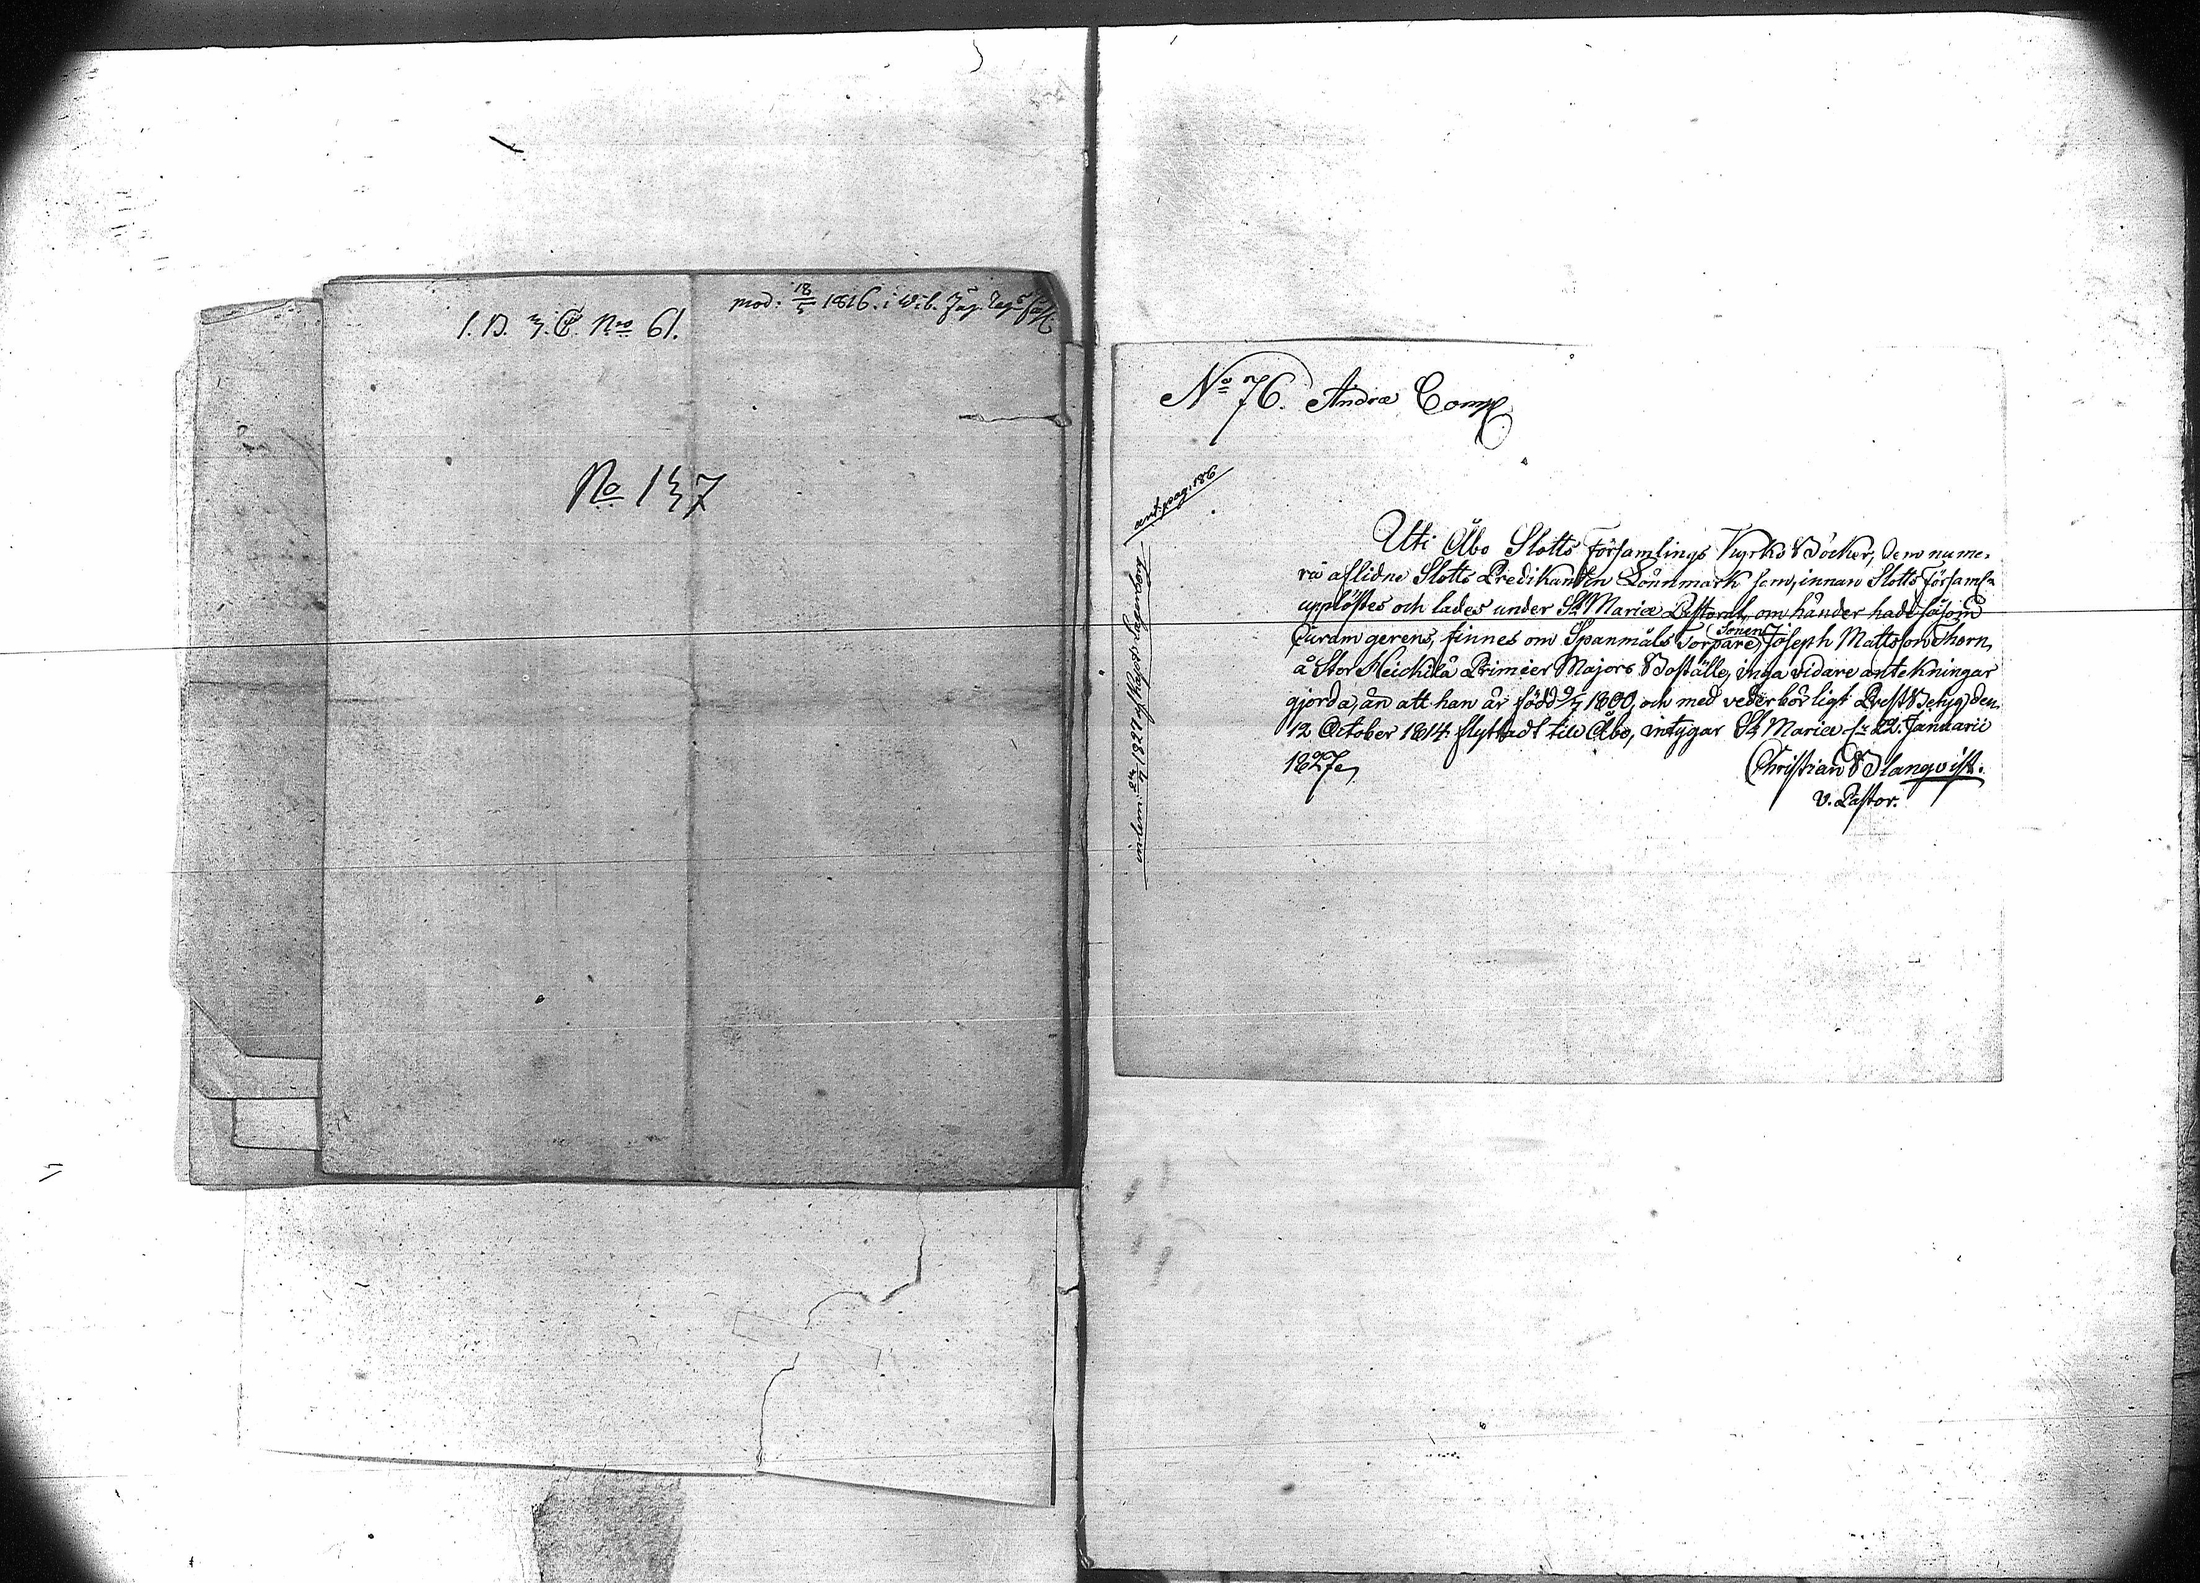 mod: 18/5 1816. i Wib. Jäg. Reg:
1. D. 3. C. No 61.
No 137
No 76. Andra Comp
ant. pag. 186
inlem: 24/7 1827 af Kapt: Lagerborg
Uti Åbo Slotts Församlings Kyrko Böcker, dem nume-
ra aflidne Slotts Predikanten Lönnmark som, innan Slotts Församl:n
upplöstes och lades under St Mariæ Pastorat, om händer hade såsom
Curam gerens, finnes om Spanmåls Torpare Sonen Joseph Mattsson Thorn,
å Stor Heickilä Primier Majors Boställe, inga vidare antekningar
gjorda, än att han är född 9/7 1800, och med vederbörligt Prest Betyg den
12 October 1814 flyttadt till Åbo, intygar St Mariæ d: 22. Januarii
1827,
Christian Blanqvist.
v. Pastor.